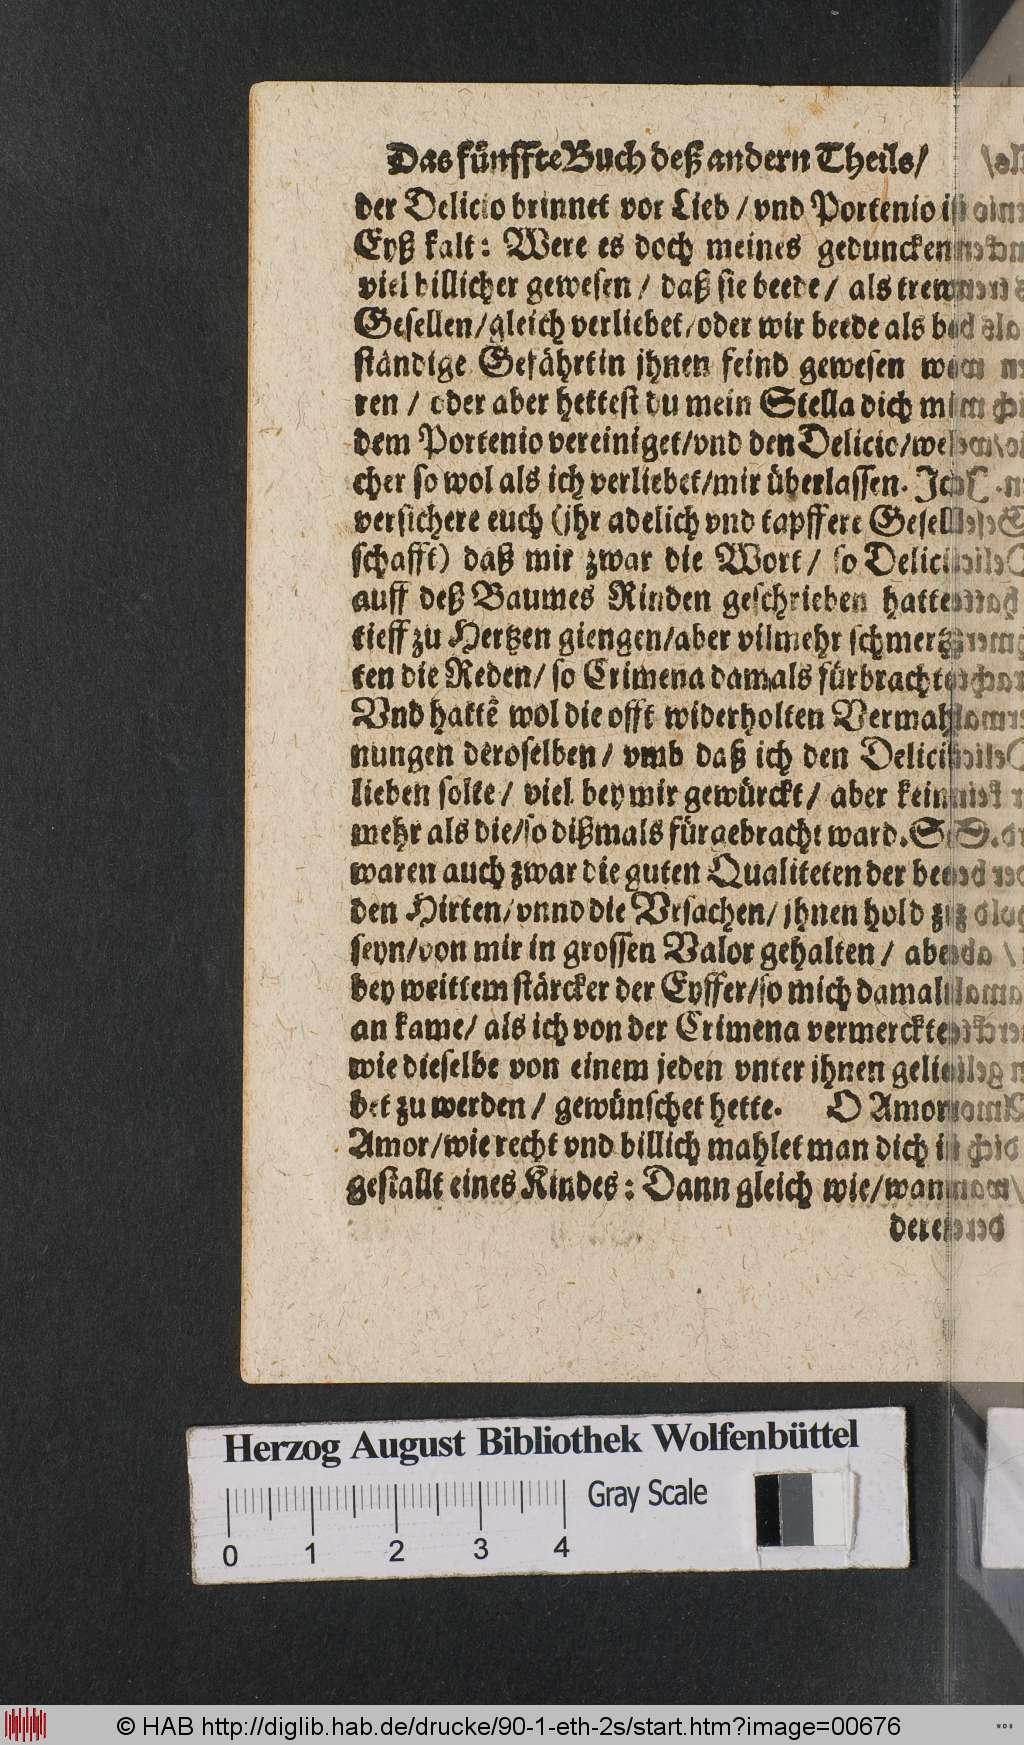 Das fünffte Buch deß andern Theils/
der Delicio brinnet vor Lieb / vnd Portenio ist
Eyß kalt: Were es doch meines geduncken
viel billicher gewesen / daß sie beede / als trew
Gesellen/gleich verliebet/oder wir beede als be
ständige Gefährtin jhnen feind gewesen we
ren / oder aber hettest du mein Stella dich mi
dem Portenio vereiniget/vnd den Delicio/wel
cher so wol als ich verliebet/mir überlassen. Ich
versichere euch (jhr adelich vnd tapffere Gesell
schafft) daß mir zwar die Wort / so Delici
auff deß Baumes Rinden geschrieben hatte
tieff zu Hertzen giengen/aber vilmehr schmertz
ten die Reden/ so Crimena damals fürbracht
Vnd hattē wol die offt widerholten Vermah
nungen deroselben / vmb daß ich den Delici
lieben solte / viel bey mir gewürckt / aber kein
mehr als die/so dißmals fürgebracht ward. S
waren auch zwar die guten Qualiteten der bee
den Hirten/vnnd die Vrsachen/ jhnen hold z
seyn/von mir in grossen Valor gehalten / abe
bey weittem stärcker der Eyffer/so mich damal
an kame/ als ich von der Crimena vermerckte
wie dieselbe von einem jeden vnter ihnen gelie
bet zu werden / gewünschet hette. O Amor
Amor/wie recht vnd billich mahlet man dich i
gestallt eines Kindes: Dann gleich wie/wann
dere
Herzog August Bibliothek Wolfenbüttel
Gray Scale
0 1 2 3 4
© HAB http://diglib.hab.de/drucke/90-1-eth-2s/start.htm?image=00676